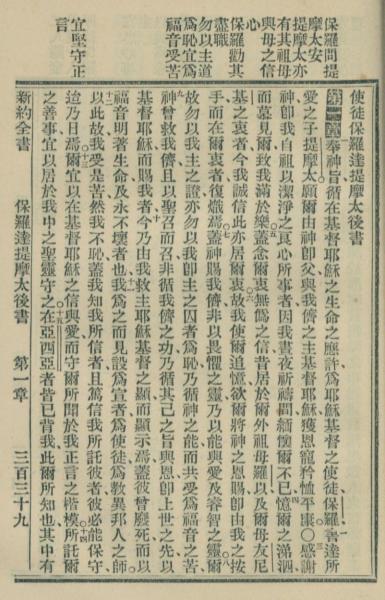 保羅問提
摩太安
提摩太亦
有其祖母
與母之信
心
保羅勸其
盡職
勿以主道
為恥宜為
福音受苦
宜堅守正
言
使徒保羅達提摩太後書
第一章奉神旨循在基督耶穌之生命之應許為耶穌基督之使徒保羅書達所
愛之子提摩太願爾由神即父與我儕之主基督耶穌獲恩寵矜恤平康〇感謝
神即我自祖以潔淨之良心所事者因我晝夜祈禱間緬懷爾不已憶爾之涕泗
而慕見爾致我滿於樂蓋念爾衷無偽之信昔居於爾外祖母羅以及爾母友尼
基之衷者今我誠信此亦居爾衷故我使爾追憶欲爾將神之恩賜即由我之按
手而在爾衷者復熾焉蓋神賜我儕非以畏懼之靈乃以能與愛及睿智之靈爾
故勿以我主之證亦勿以我即主之囚者為恥乃循神之能而共受為福音之苦
神曾救我儕且以聖召而召非循我儕之功乃循其己之旨與恩即上世之先以
基督耶穌而賜我者今乃由我救主耶穌基督之顯而顯示焉蓋彼曾廢死而以
福音明著生命及永不壞者也我為之而見設為宣者為使徒為教異邦人之師
以此故我受是苦然我不恥蓋我知我所信者且篤信我所託彼者彼必能保守
迨乃日焉爾宜以在基督耶穌之信與愛而守爾所聞於我正言之楷模所託爾
之善事宜以居於我中之聖靈守之在亞西亞者皆已背我此爾所知也其中有
新約全書 保羅達提摩太後書 第一章 三百三十九